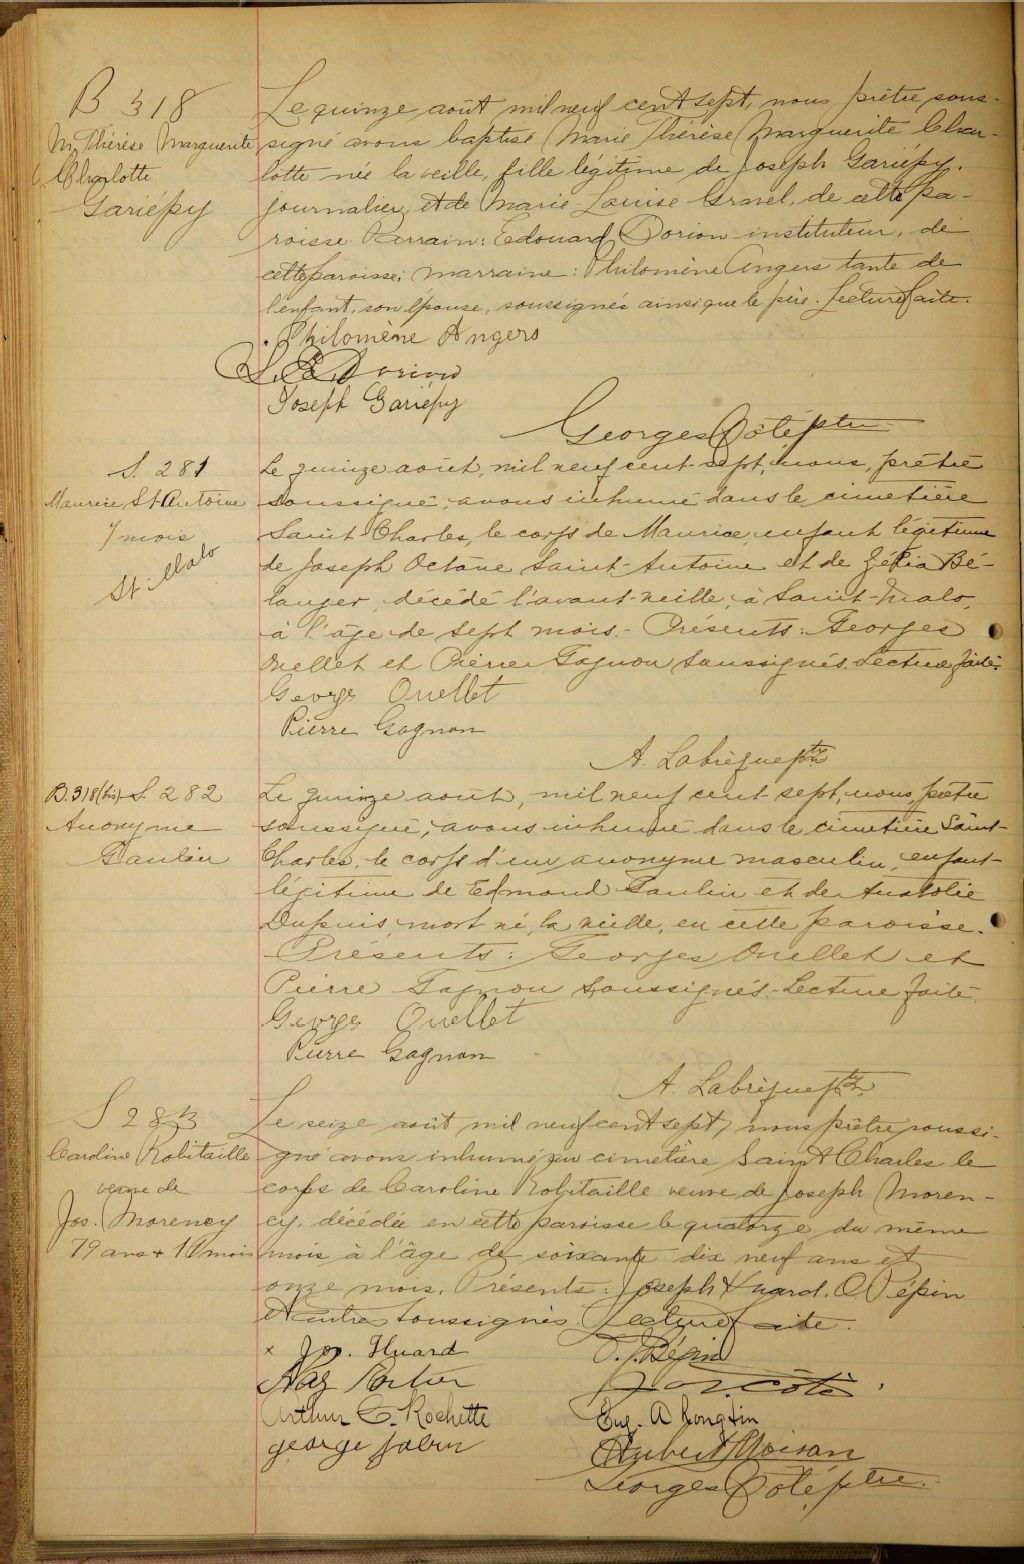 B 318
M. Thérèse Marguerite
Charlotte
Gariépy
Le quinze août mil neuf cent sept, nous prêtre sous-
signé avons baptisé Marie Thérèse Marguerite Char-
lotte née la veille, fille légitime de Joseph Gariépy,
journalier, et de Marie-Louise Gravel, de cette pa-
roisse. Parrain: Edouard Dorion instituteur, de
cette paroisse; marraine: Philomène Angers tante de
l'enfant, son épouse, soussignés ainsi que le père. Lecture faite.
Philomène Angers
Dorion
Joseph Gariépy
Georges Côté ptre
S. 281
Maurice St Antoine
7 mois
St Malo
Le quinze août, mil neuf cent-sept, nous, prêtre
soussigné, avons inhumé dans le cimetière
Saint Charles, le corps de Maurice, enfant légitime
de Joseph Octave Saint-Antoine et de Zélia Bé-
langer, décédé l'avant-veille, à Saint-Malo,
à l'âge de sept mois.- Présents: Georges
Ouellet et Pierre Gagnon soussignés. Lecture faite.
George Ouellet
Pierre Gagnon
A. Labrèque ptre
B. 318 (bis) S. 282
Anonyme
Gaulin
Le quinze août, mil neuf cent-sept, nous, prêtre
soussigné, avons inhumé dans le cimetière Saint-
Charles, le corps d'un anonyme masculin, enfant
légitime de Edmond Gaulin et de Anatolie
Dupuis, mort né, la veille, en cette paroisse.
Présents: Georges Ouellet et
Pierre Gagnon soussignés.- Lecture faite.
George Ouellet
Pierre Gagnon
A. Labrèque ptre
S 283
Caroline Robitaille
veuve de
Jos. Morency
79 ans + 11 mois
Le seize août mil neuf cent sept, nous prêtre soussi-
gné avons inhumé au cimetière Saint Charles le
corps de Caroline Robitaille veuve de Joseph Moren-
cy, décédée en cette paroisse le quatorze du même
mois à l'âge de soixante dix neuf ans et
onze mois. Présents: Joseph Huard, O. Pépin
et autres soussignés. Lecture faite.
x Jos. Huard
Pépin
Côté
Arthur C. Rochette
Eug. A
George Jobin
Hubert Moisan
Georges Côté, ptre.